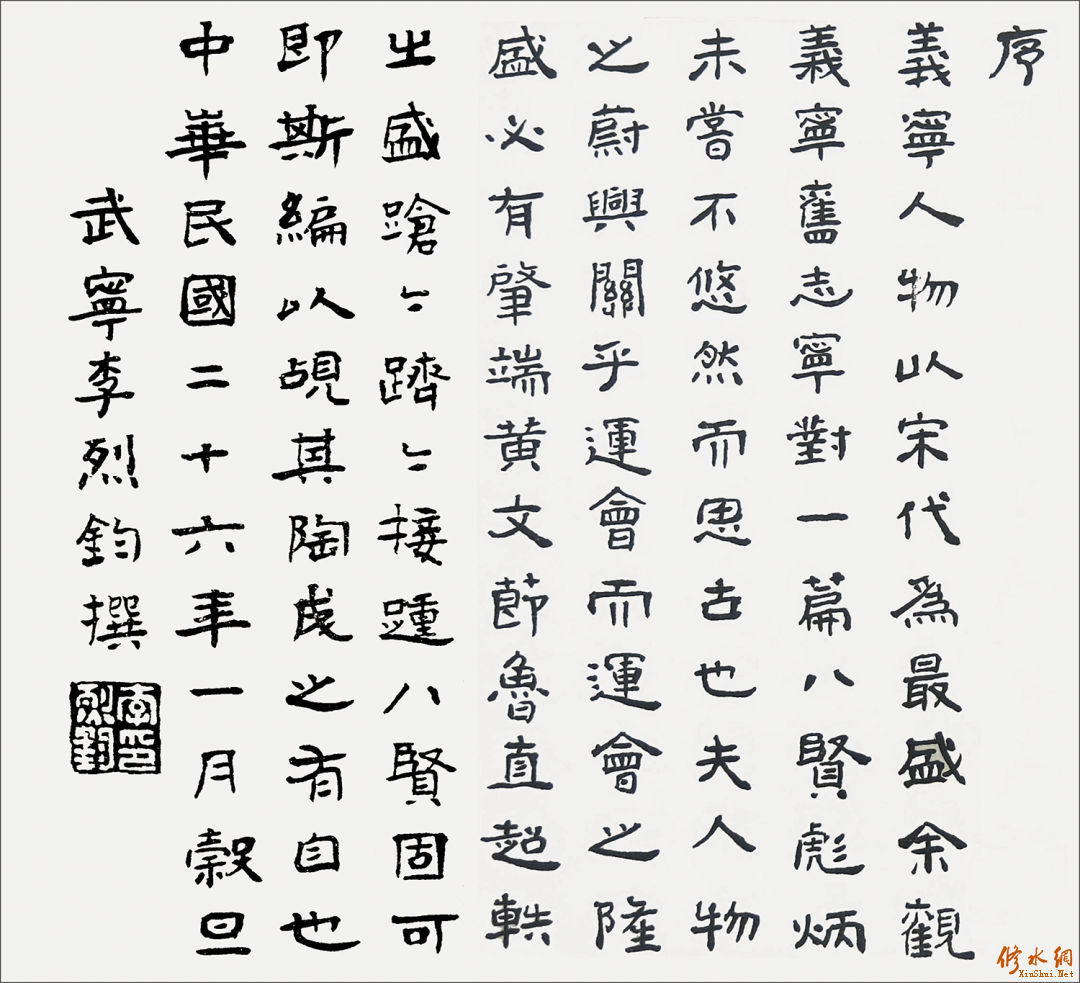 序
義寧人物以宋代為最盛余觀
義寧舊志寧對一篇八賢彪炳
未嘗不悠然而思古也夫人物
之蔚興關乎運會而運會之隆
盛必有肇端黃文節魯直超軼
出盛蹌々躋々接踵八賢固可
即斯編以覘其陶成之有自也
中華民國二十六年一月穀旦
武寧李烈鈞撰
李烈鈞印
修水網
XiuShui.Net